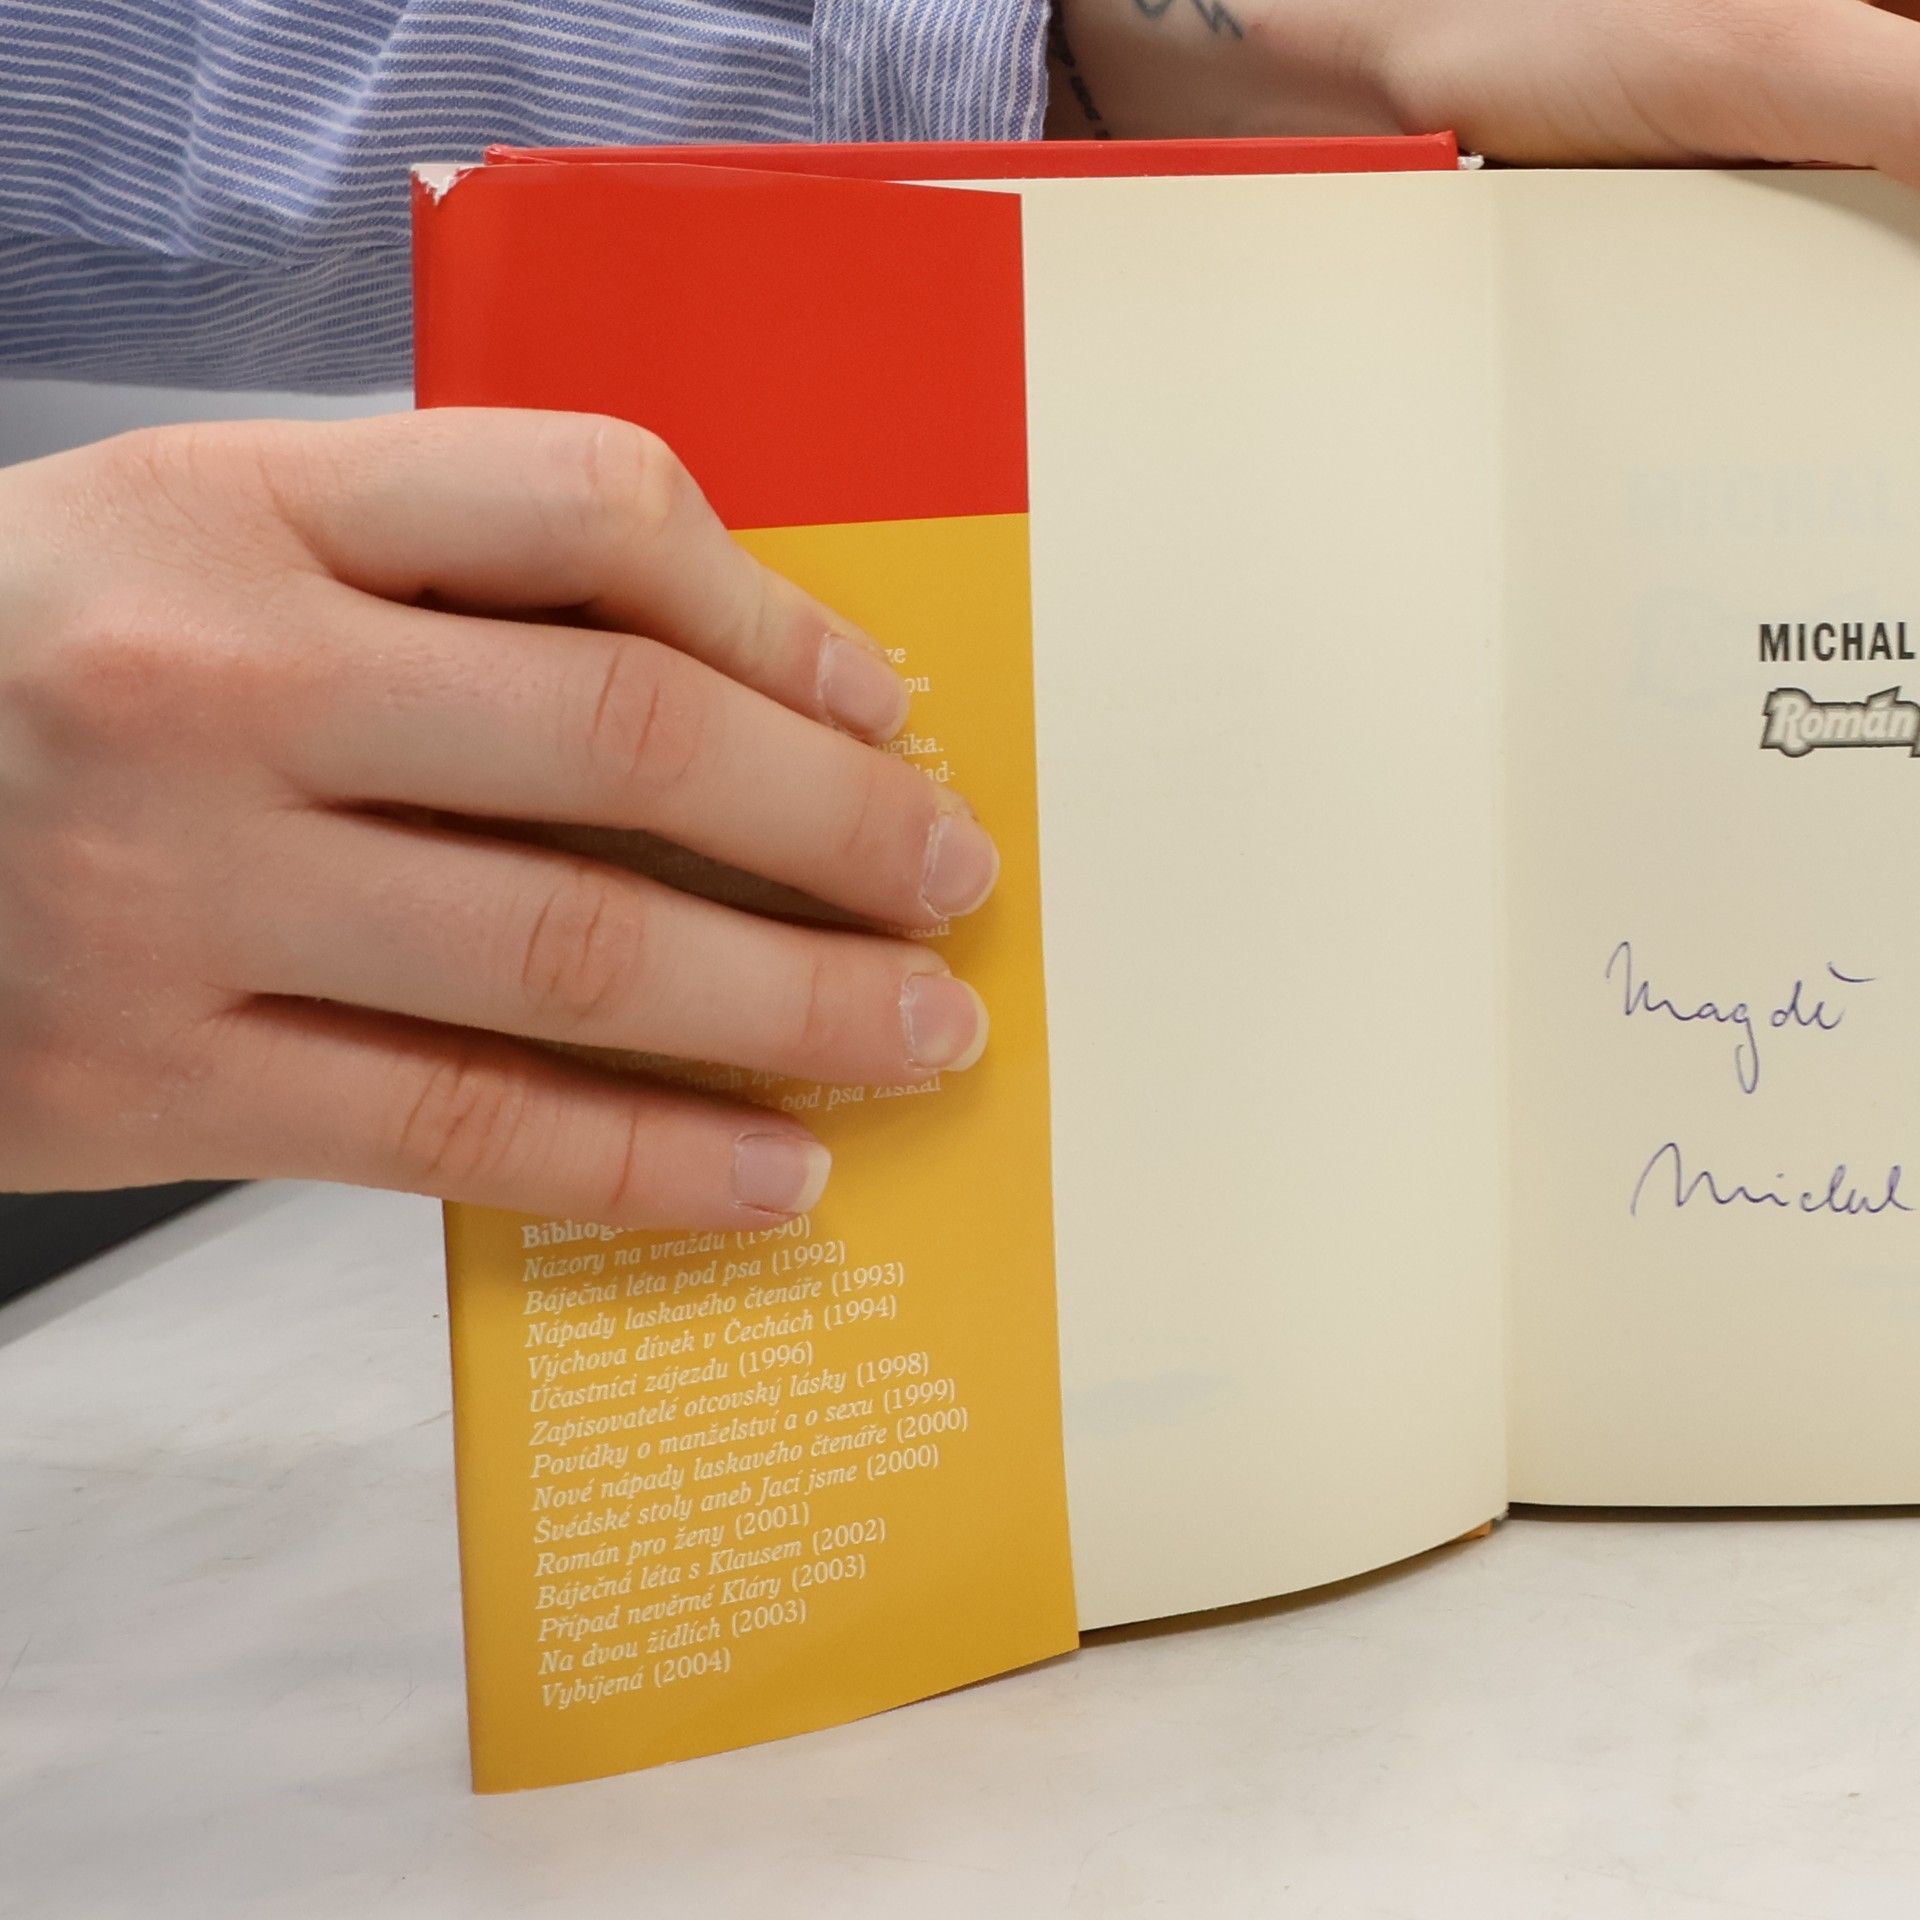 ze
ou
ugika.
lad-
pod psa získal
Názory na vraždu (1990)
Báječná léta pod psa (1992)
Nápady laskavého čtenáře (1993)
Výchova dívek v Čechách (1994)
Účastníci zájezdu (1996)
Zapisovatelé otcovský lásky (1998)
Povídky o manželství a o sexu (1999)
Nové nápady laskavého čtenáře (2000)
Švédské stoly aneb Jací jsme (2000)
Román pro ženy (2001)
Báječná léta s Klausem (2002)
Případ nevěrné Kláry (2003)
Na dvou židlích (2003)
Vybíjená (2004)
MICHAL
Román
Magdě
Michal